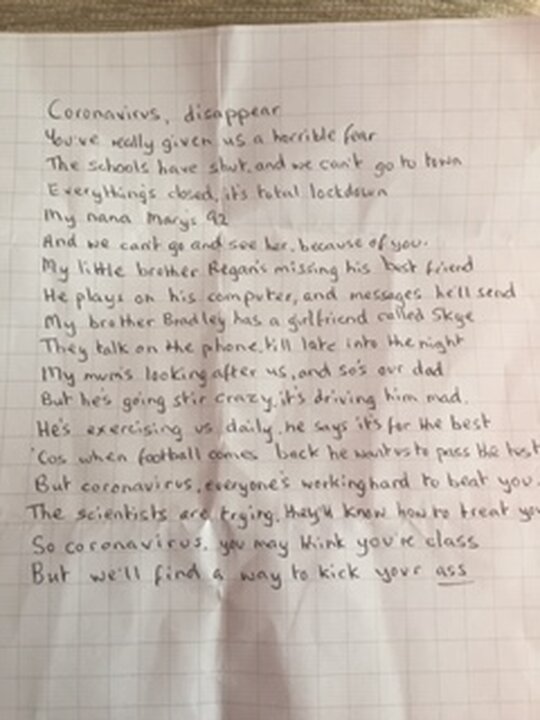 Coronavirus, disappear
You've really given us a horrible fear
The schools have shut, and we can't go to town
Everything's closed, it's total lockdown
My nana Mary's 92
And we can't go and see her, because of you.
My little brother Regan's missing his best friend
He plays on his computer, and messages he'll send
My brother Bradley has a girlfriend called Skye
They talk on the phone, till late into the night
My mum's looking after us, and so's our dad
But he's going stir crazy, it's driving him mad.
He's exercising us daily, he says it's for the best
'Cos when football comes back he wants us to pass the test
But coronavirus, everyone's working hard to beat you.
The scientists are trying, they'll know how to treat you
So coronavirus, you may think you're class
But we'll find a way to kick your ass